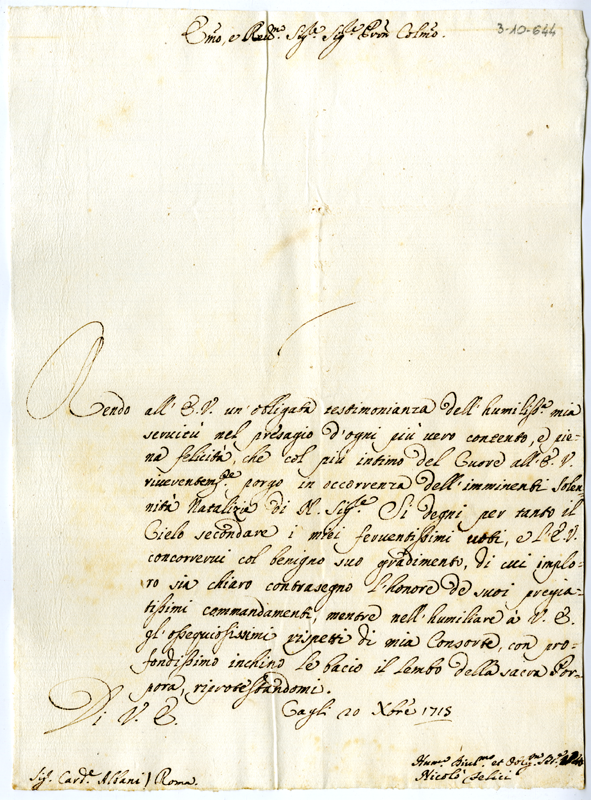 Emo, e Revmo. Sige. Sige. Pron Colmo.
3-10-644
Rendo all' E.V. un' obligata testimonianza dell' humilissa. mia
servitù nel presagio d'ogni più vero contento, e pie-
na felicità, che col più intimo del Cuore all' E.V.
riverentemte. porgo in occorrenza dell' imminenti Solen-
nità Natalizia di N. Sige. Si degni per tanto il
Cielo secondare i miei ferventissimi voti, e l'E.V.
concorrervi col benigno suo gradimento, di cui implo-
ro sia chiaro contrasegno l'honore de suoi pregia-
tissimi commandamenti, mentre nell' humiliare à V.E.
gl' ossequiosissimi rispetti di mia Consorte, con pro-
fondissimo inchino le bacio il lembo della sacra Por-
pora, riprotestandomi.
Di V.E. Cagli 20 Xbre 1715
Sigr. Carde. Albani / Roma.
Nicolò Felici